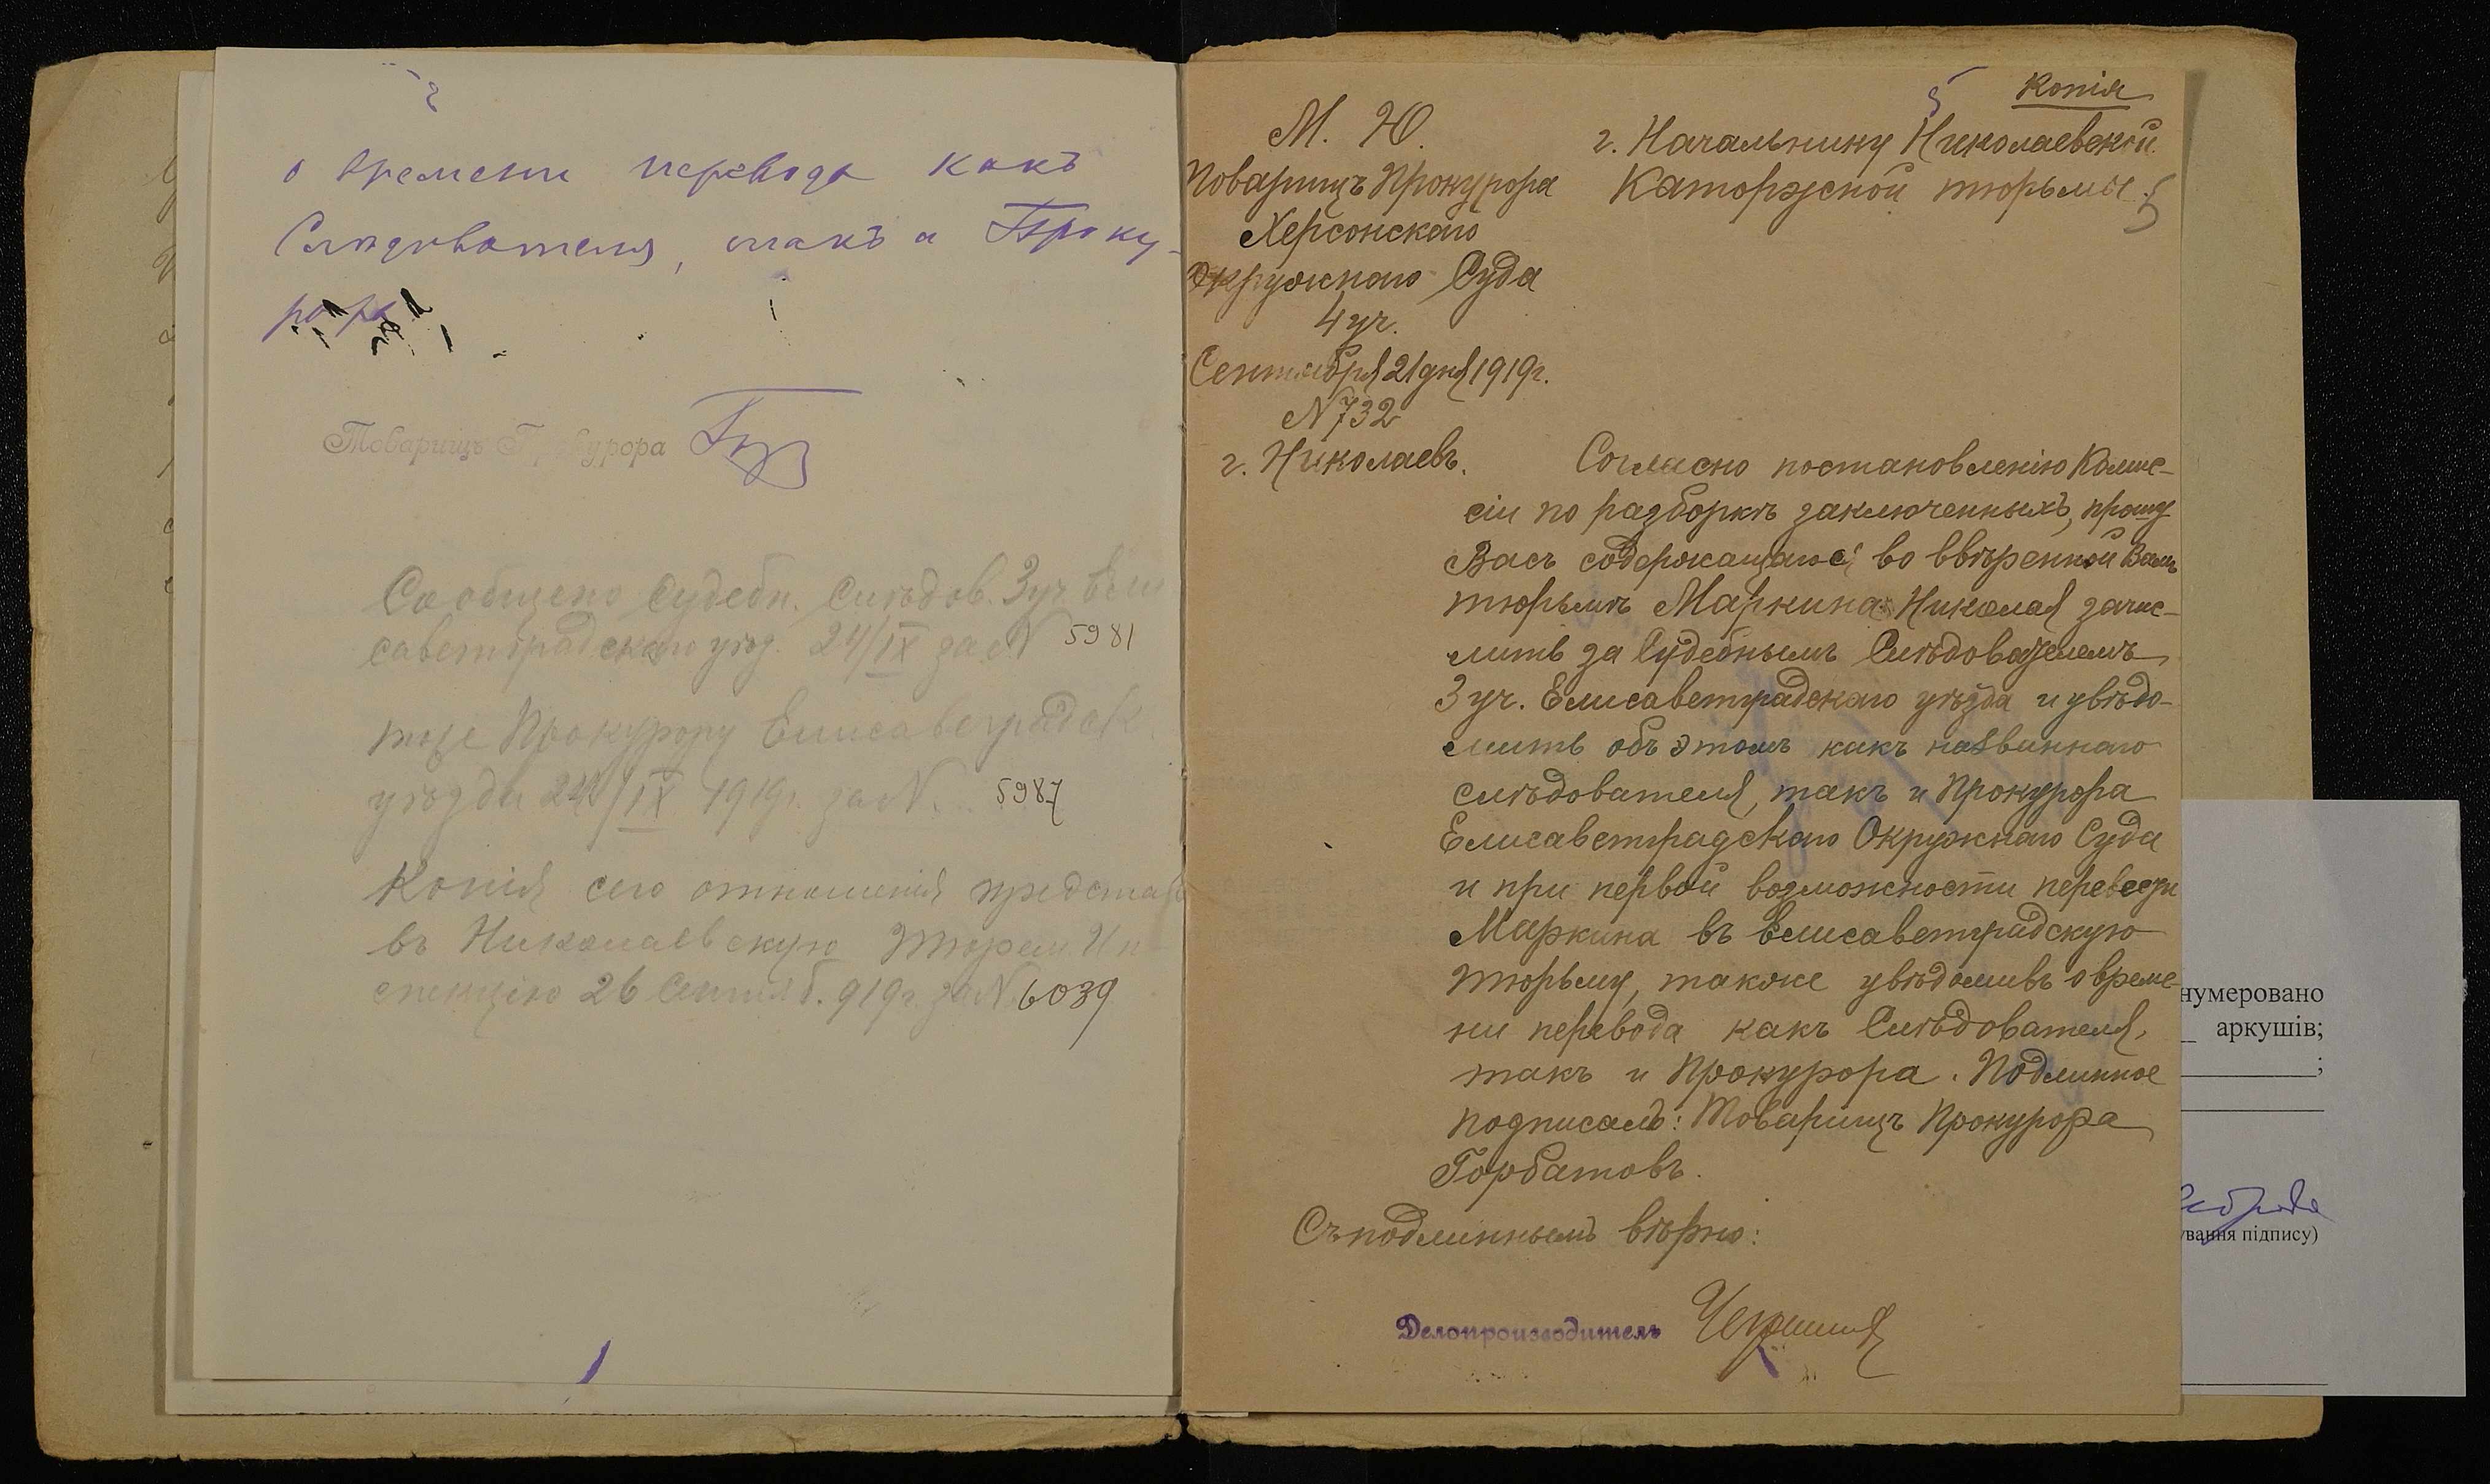 о времени перевода какъ
Слѣдователя, такъ и Проку-
рора
Товарищъ Прокурора
Сообщено Судебн. Слѣдов. 3 уч. Ели
саветградскаго уѣзд. 24/IX за N 5981
тоже Прокурору Елисаветградск.
уѣзда 24/IX 1919г. за N. 5987
Копія сего отношенія представл
въ Николаевскую Тюрем. Ин
спекцію 26 Сентяб. 919г. за N 6039
Копія
5
М. Ю.
Товарищъ Прокурора
Херсонскаго
Окружнаго Суда
4 уч.
Сентября 21 дня 1919г.
N 732
г. Николаевъ.
г. Начальнику Николаевской
Каторжской тюрьмы.
5
Согласно постановленію Комис-
сіи по разборкѣ заключенныхъ, прошу
Васъ содержащагося во ввѣренной Вамъ
тюрьмѣ Маркина Николая зачис-
лить за Судебнымъ Слѣдователемъ
3 уч. Елисаветградскаго уѣзда и увѣдо-
мить объ этомъ какъ названнаго
слѣдователя, такъ и Прокурора
Елисаветградскаго Окружнаго Суда
и при первой возможности перевести
Маркина въ Елисаветградскую
тюрьму, также увѣдомивъ о време-
ни перевода какъ Слѣдователя,
такъ и Прокурора. Подлинное
подписалъ: Товарищъ Прокурора
Горбатовъ.
Съ подлиннымъ вѣрно:
Делопроизводитель
нумеровано
аркушів;
;
ування підпису)